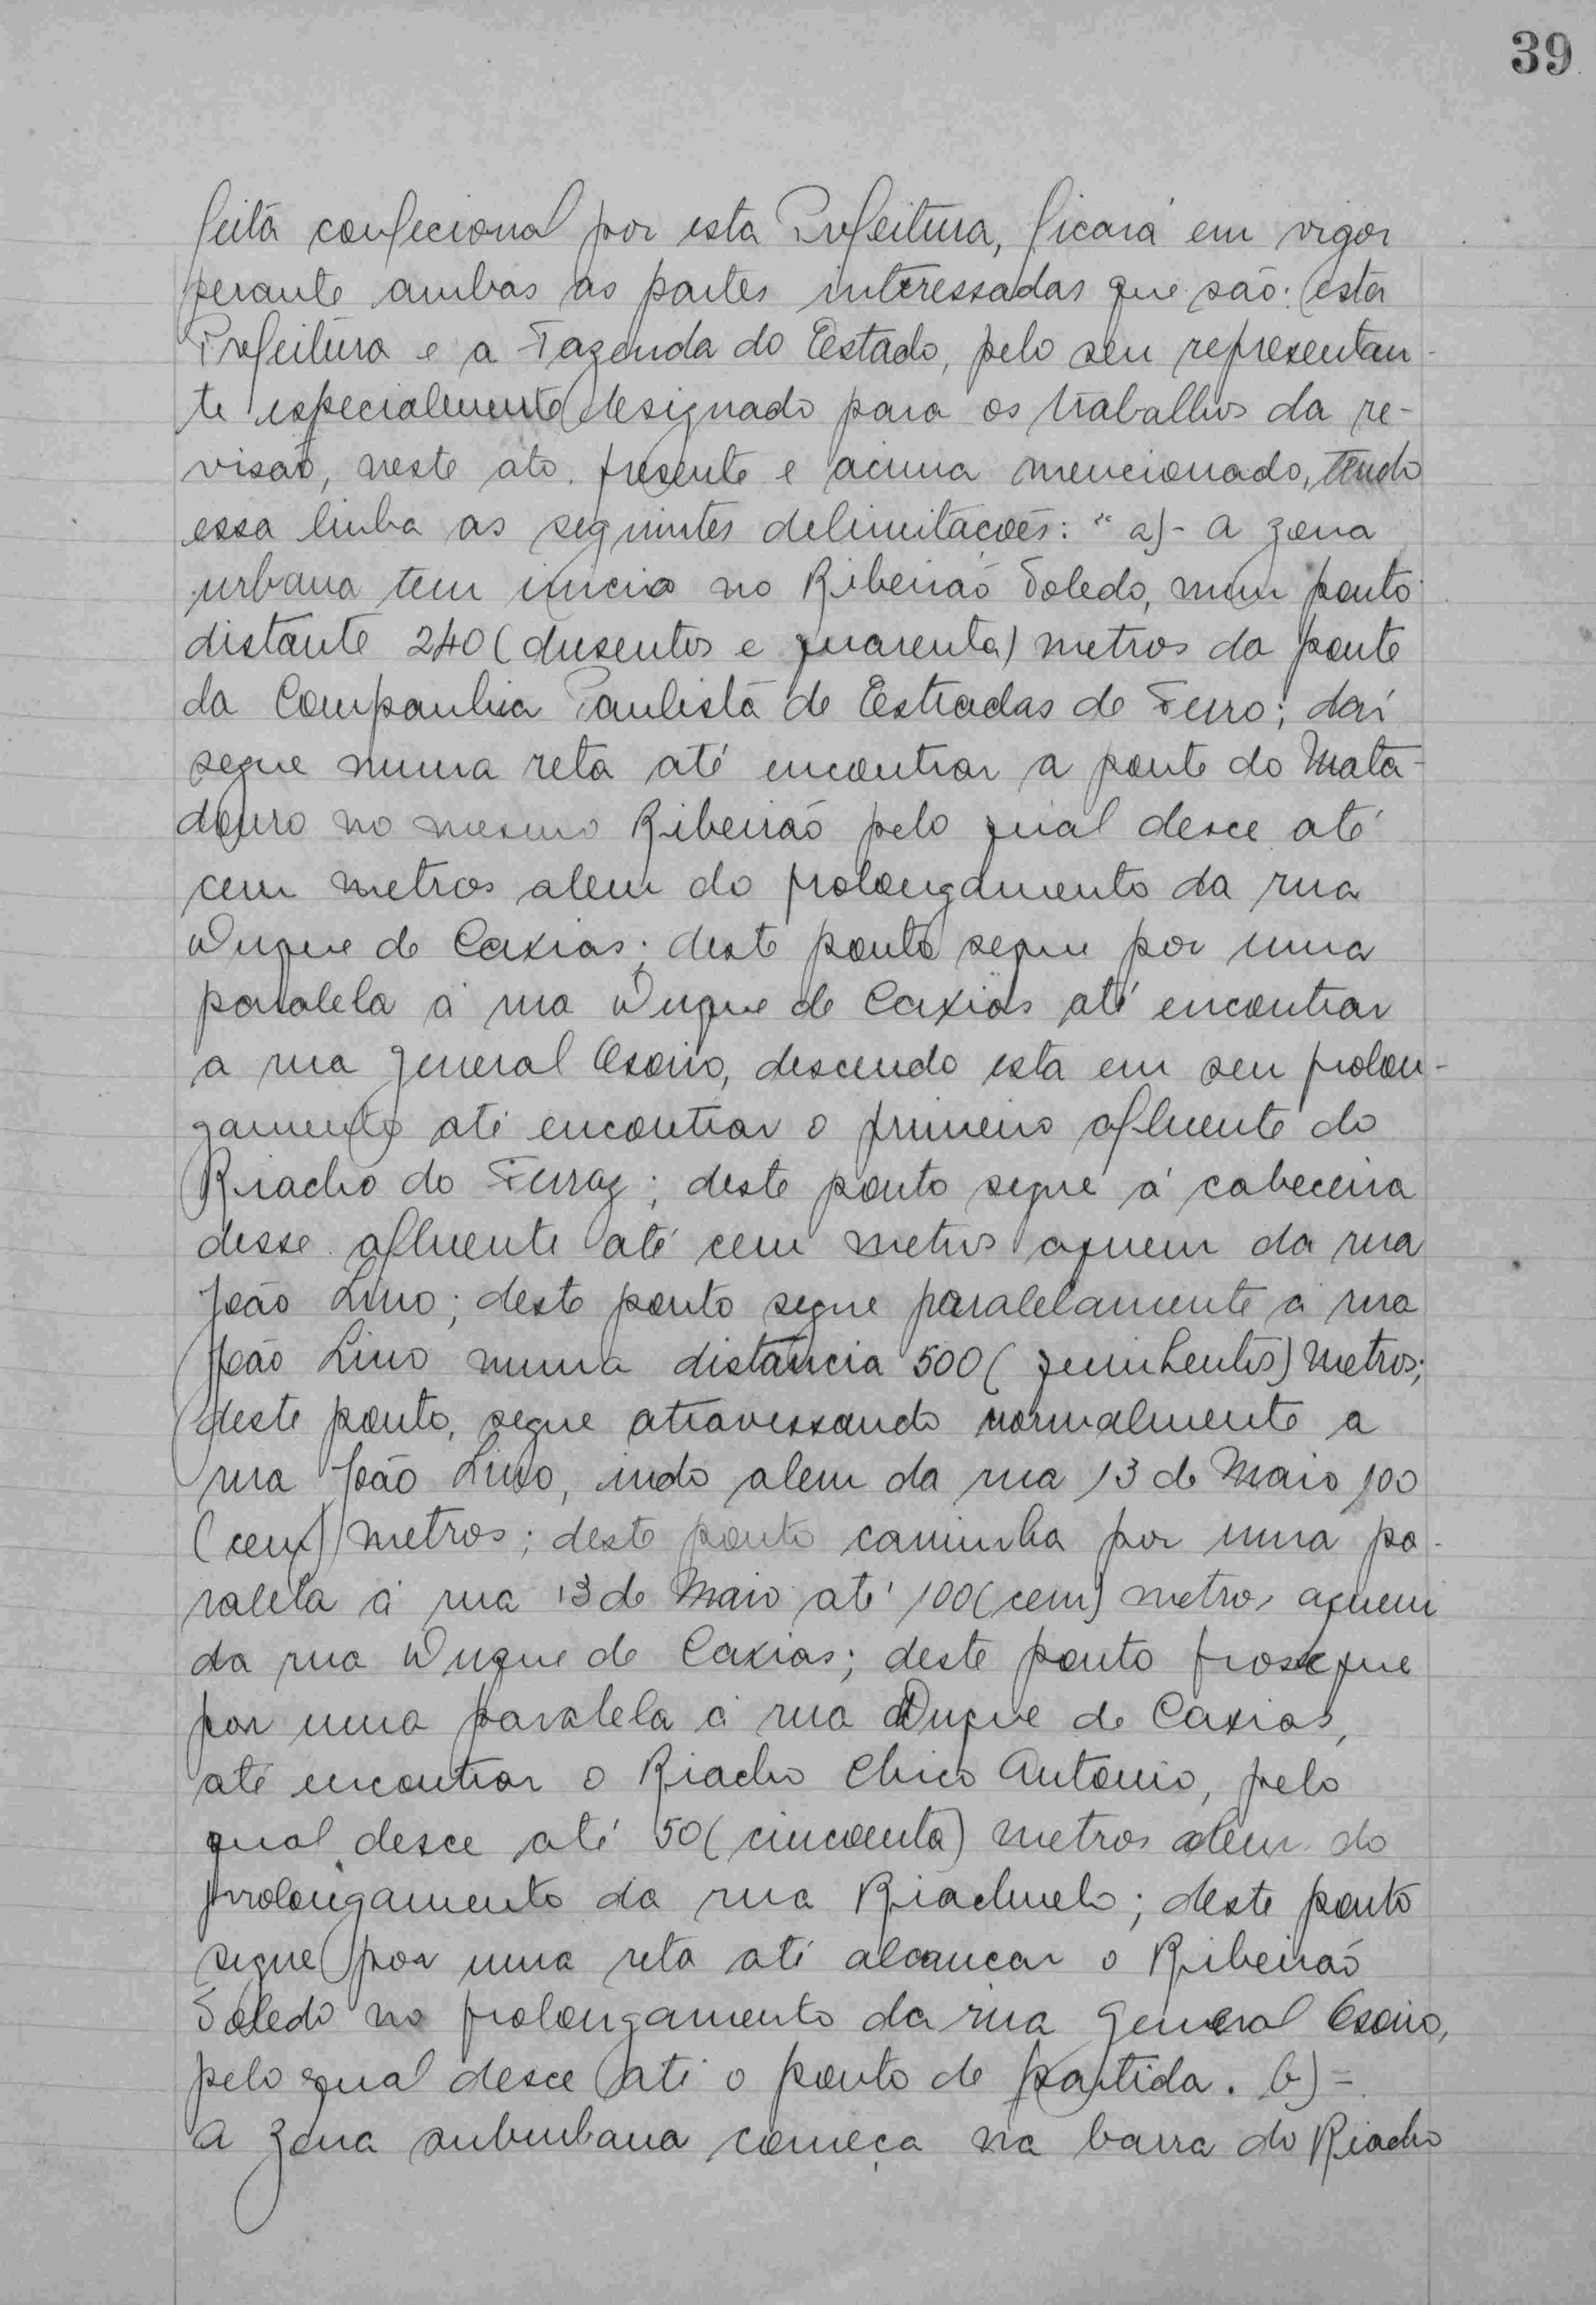 39
feita confecional por esta Prefeitura, ficará em vigor
perante ambas as partes interessadas que são: esta
Prefeitura e a Fazenda do Estado, pelo seu representan-
te especialmente designado para os trabalhos da re-
visão, neste ato presente e acima mencionado, tendo
essa linha as seguintes delimitações: "a)- A zona
urbana tem inicio no Ribeirão Toledo, num ponto
distante 240 (dusentos e quarenta) metros da ponte
da Companhia Paulista de Estradas de Ferro; daí
segue numa reta até encontrar a ponte do Mata-
douro no mesmo Ribeirão pelo qual desce até
cem metros alem do prolongamento da rua
Duque de Caxias; deste ponto segue por uma
paralela á rua Duque de Caxias até encontrar
a rua General Osorio, descendo esta em seu prolon-
gamento até encontrar o primeiro afluente do
Riacho do Ferraz; deste ponto segue á cabeceira
desse afluente até cem metros aquem da rua
João Lino; deste ponto segue paralelamente á rua
João Lino numa distancia 500 (quinhentos) metros;
deste ponto, segue atravessando normalmente a
rua João Lino, indo alem da rua 13 de Maio 100
(cem) metros; deste ponto caminha por uma pa-
ralela á rua 13 de Maio até 100 (cem) metros aquem
da rua Duque de Caxias; deste ponto prosegue
por uma paralela á rua Duque de Caxias,
até encontrar o Riacho Chico Antonio, pelo
qual desce até 50 (cincoenta) metros alem do
prolongamento da rua Riachuelo; deste ponto
segue por uma reta até alcançar o Ribeirão
Toledo no prolongamento da rua General Osorio,
pelo qual desce até o ponto de partida. b)=
A zona suburbana começa na barra do Riacho